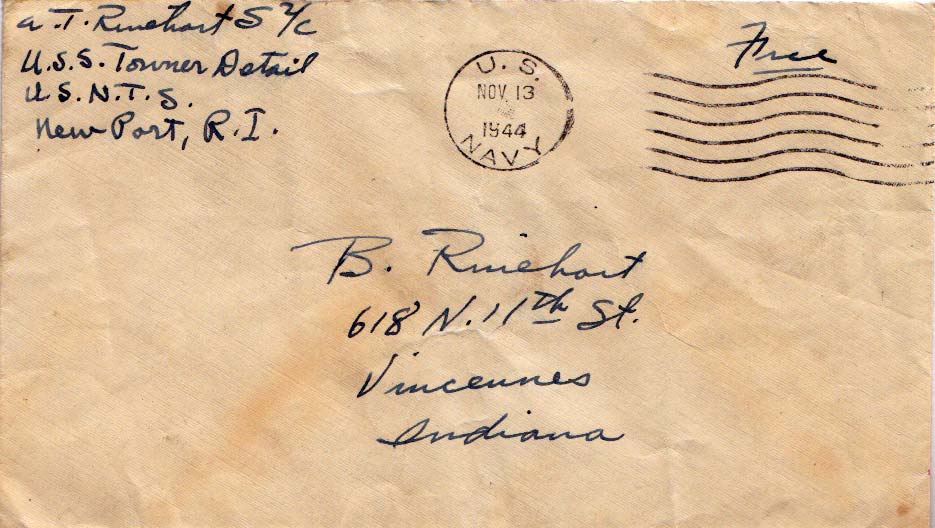 A. T. Rinehart S 2/c
U.S.S. Towner Detail
U.S.N.T.S.
New Port, R.I.
U.S.
NOV 13
1944
NAVY
Free
B. Rinehart
618 N. 11th St.
Vincennes
Indiana